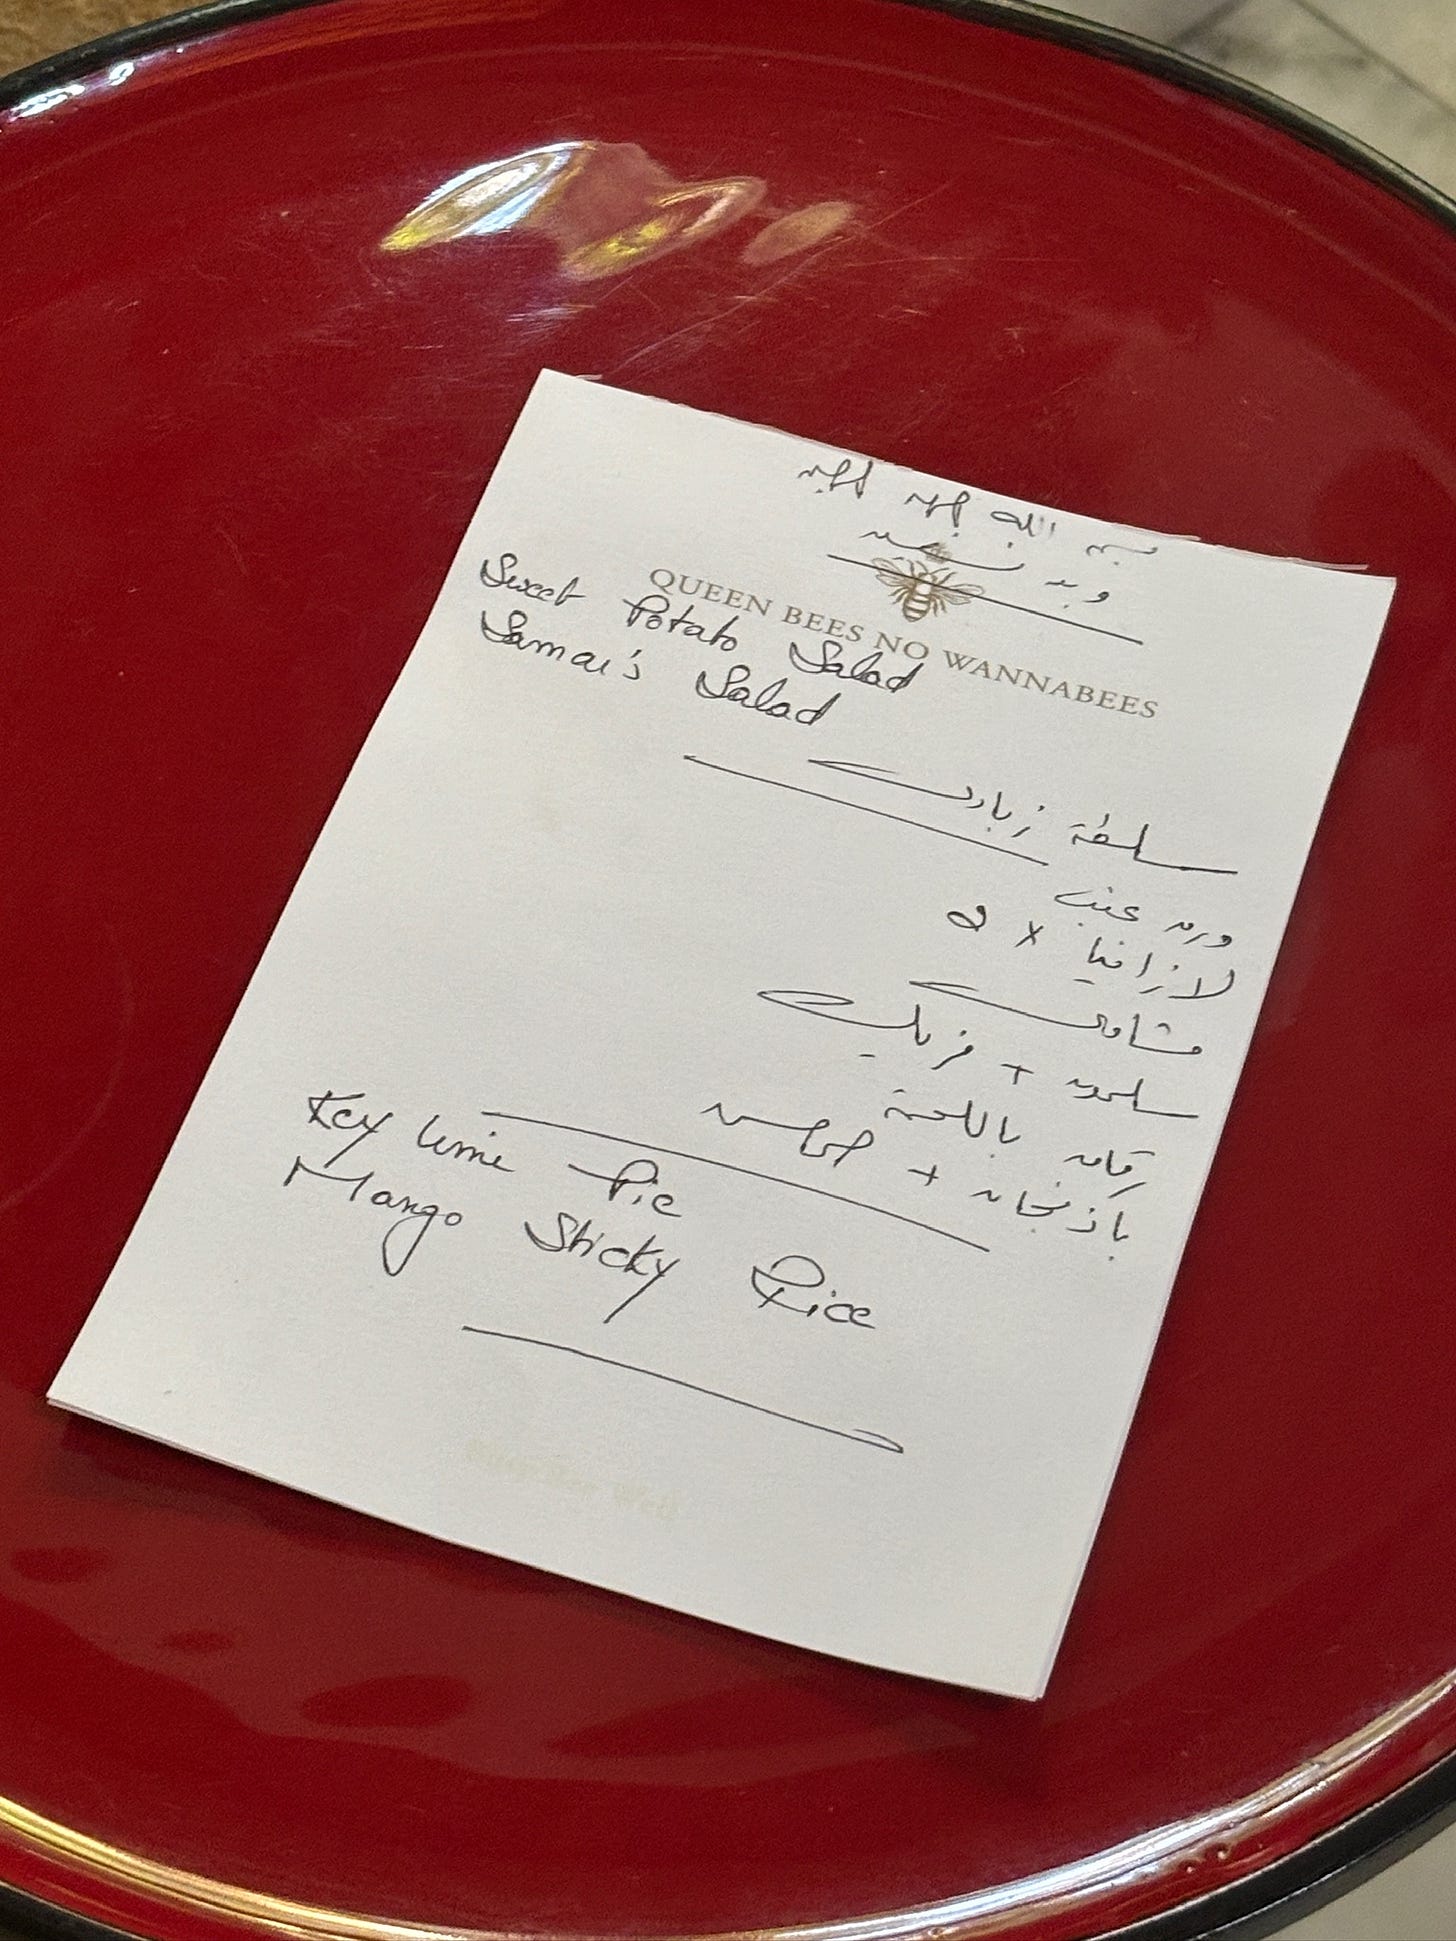 بسم الله الرحمن الرحيم
وبه نستعين
QUEEN BEES NO WANNABEES
Sweet Potato Salad
Samar's Salad
سلطة زبادي
ورق عنب
لازانيا x 2
مشاوي
سلمون + فريك
رقاق باللحمة
باذنجان +
Key Lime Pie
Mango Sticky Rice